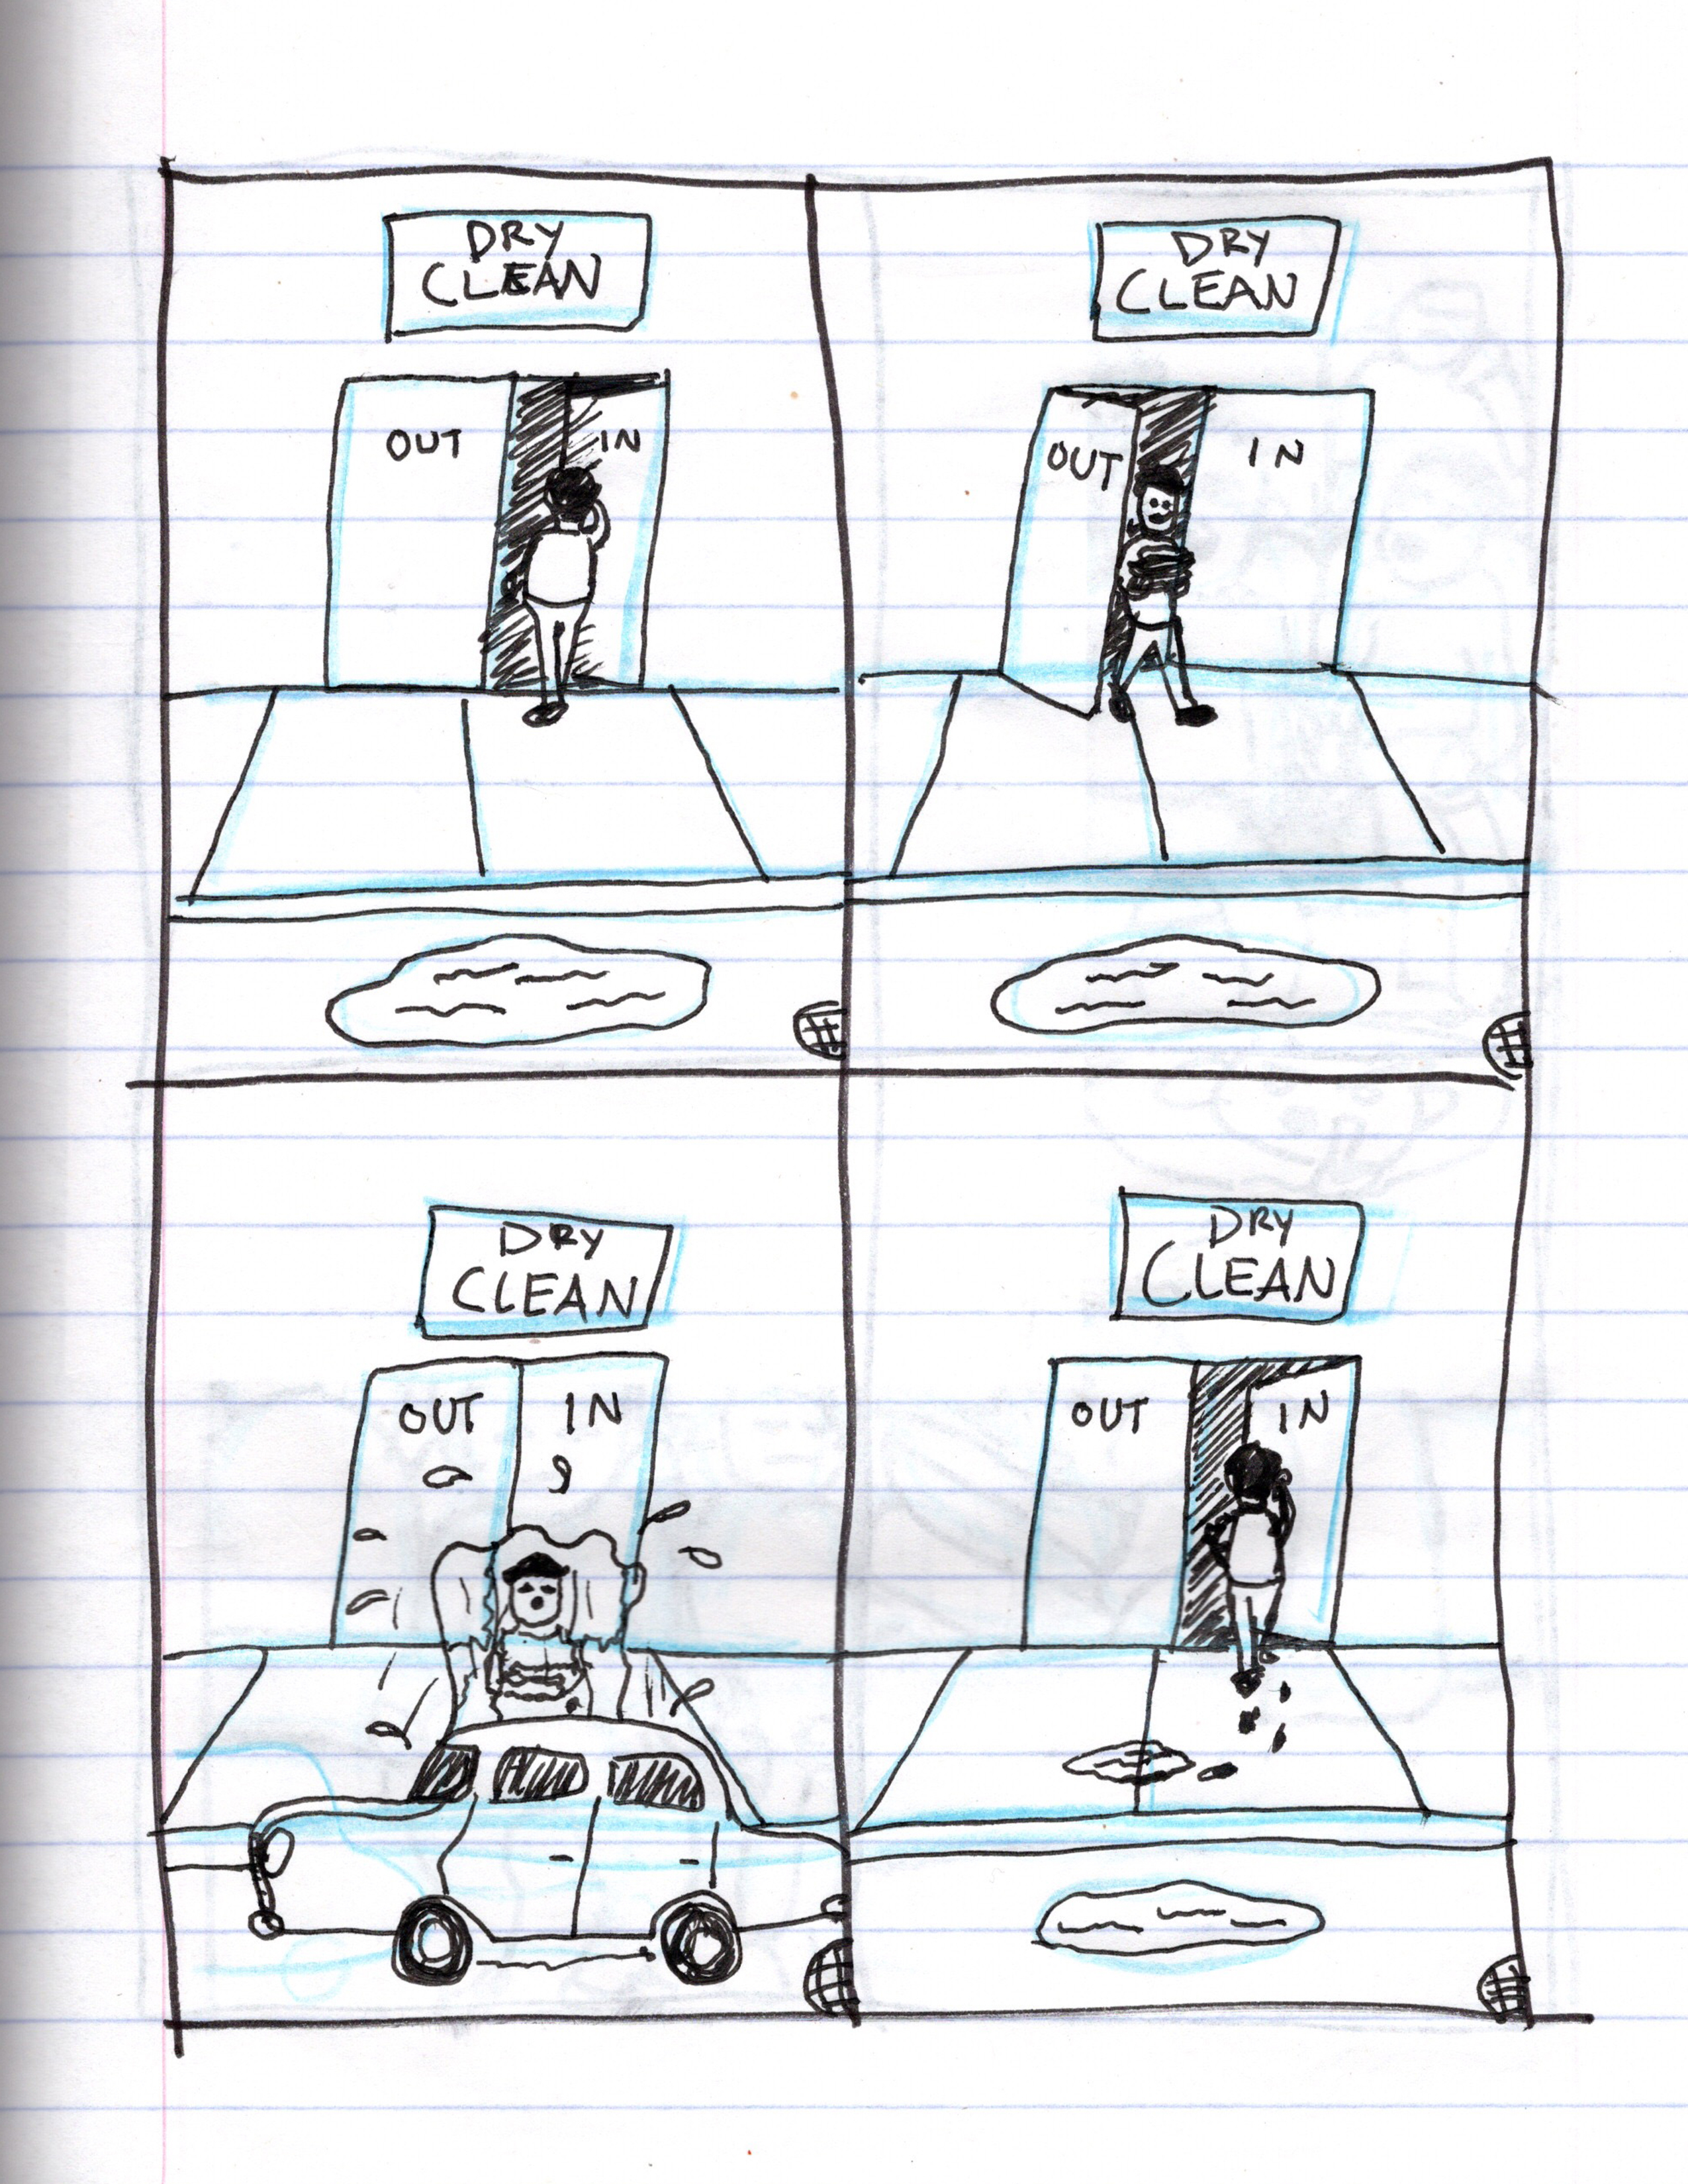 DRY
CLEAN
OUT IN
DRY
CLEAN
OUT IN
DRY
CLEAN
OUT IN
DRY
CLEAN
OUT IN